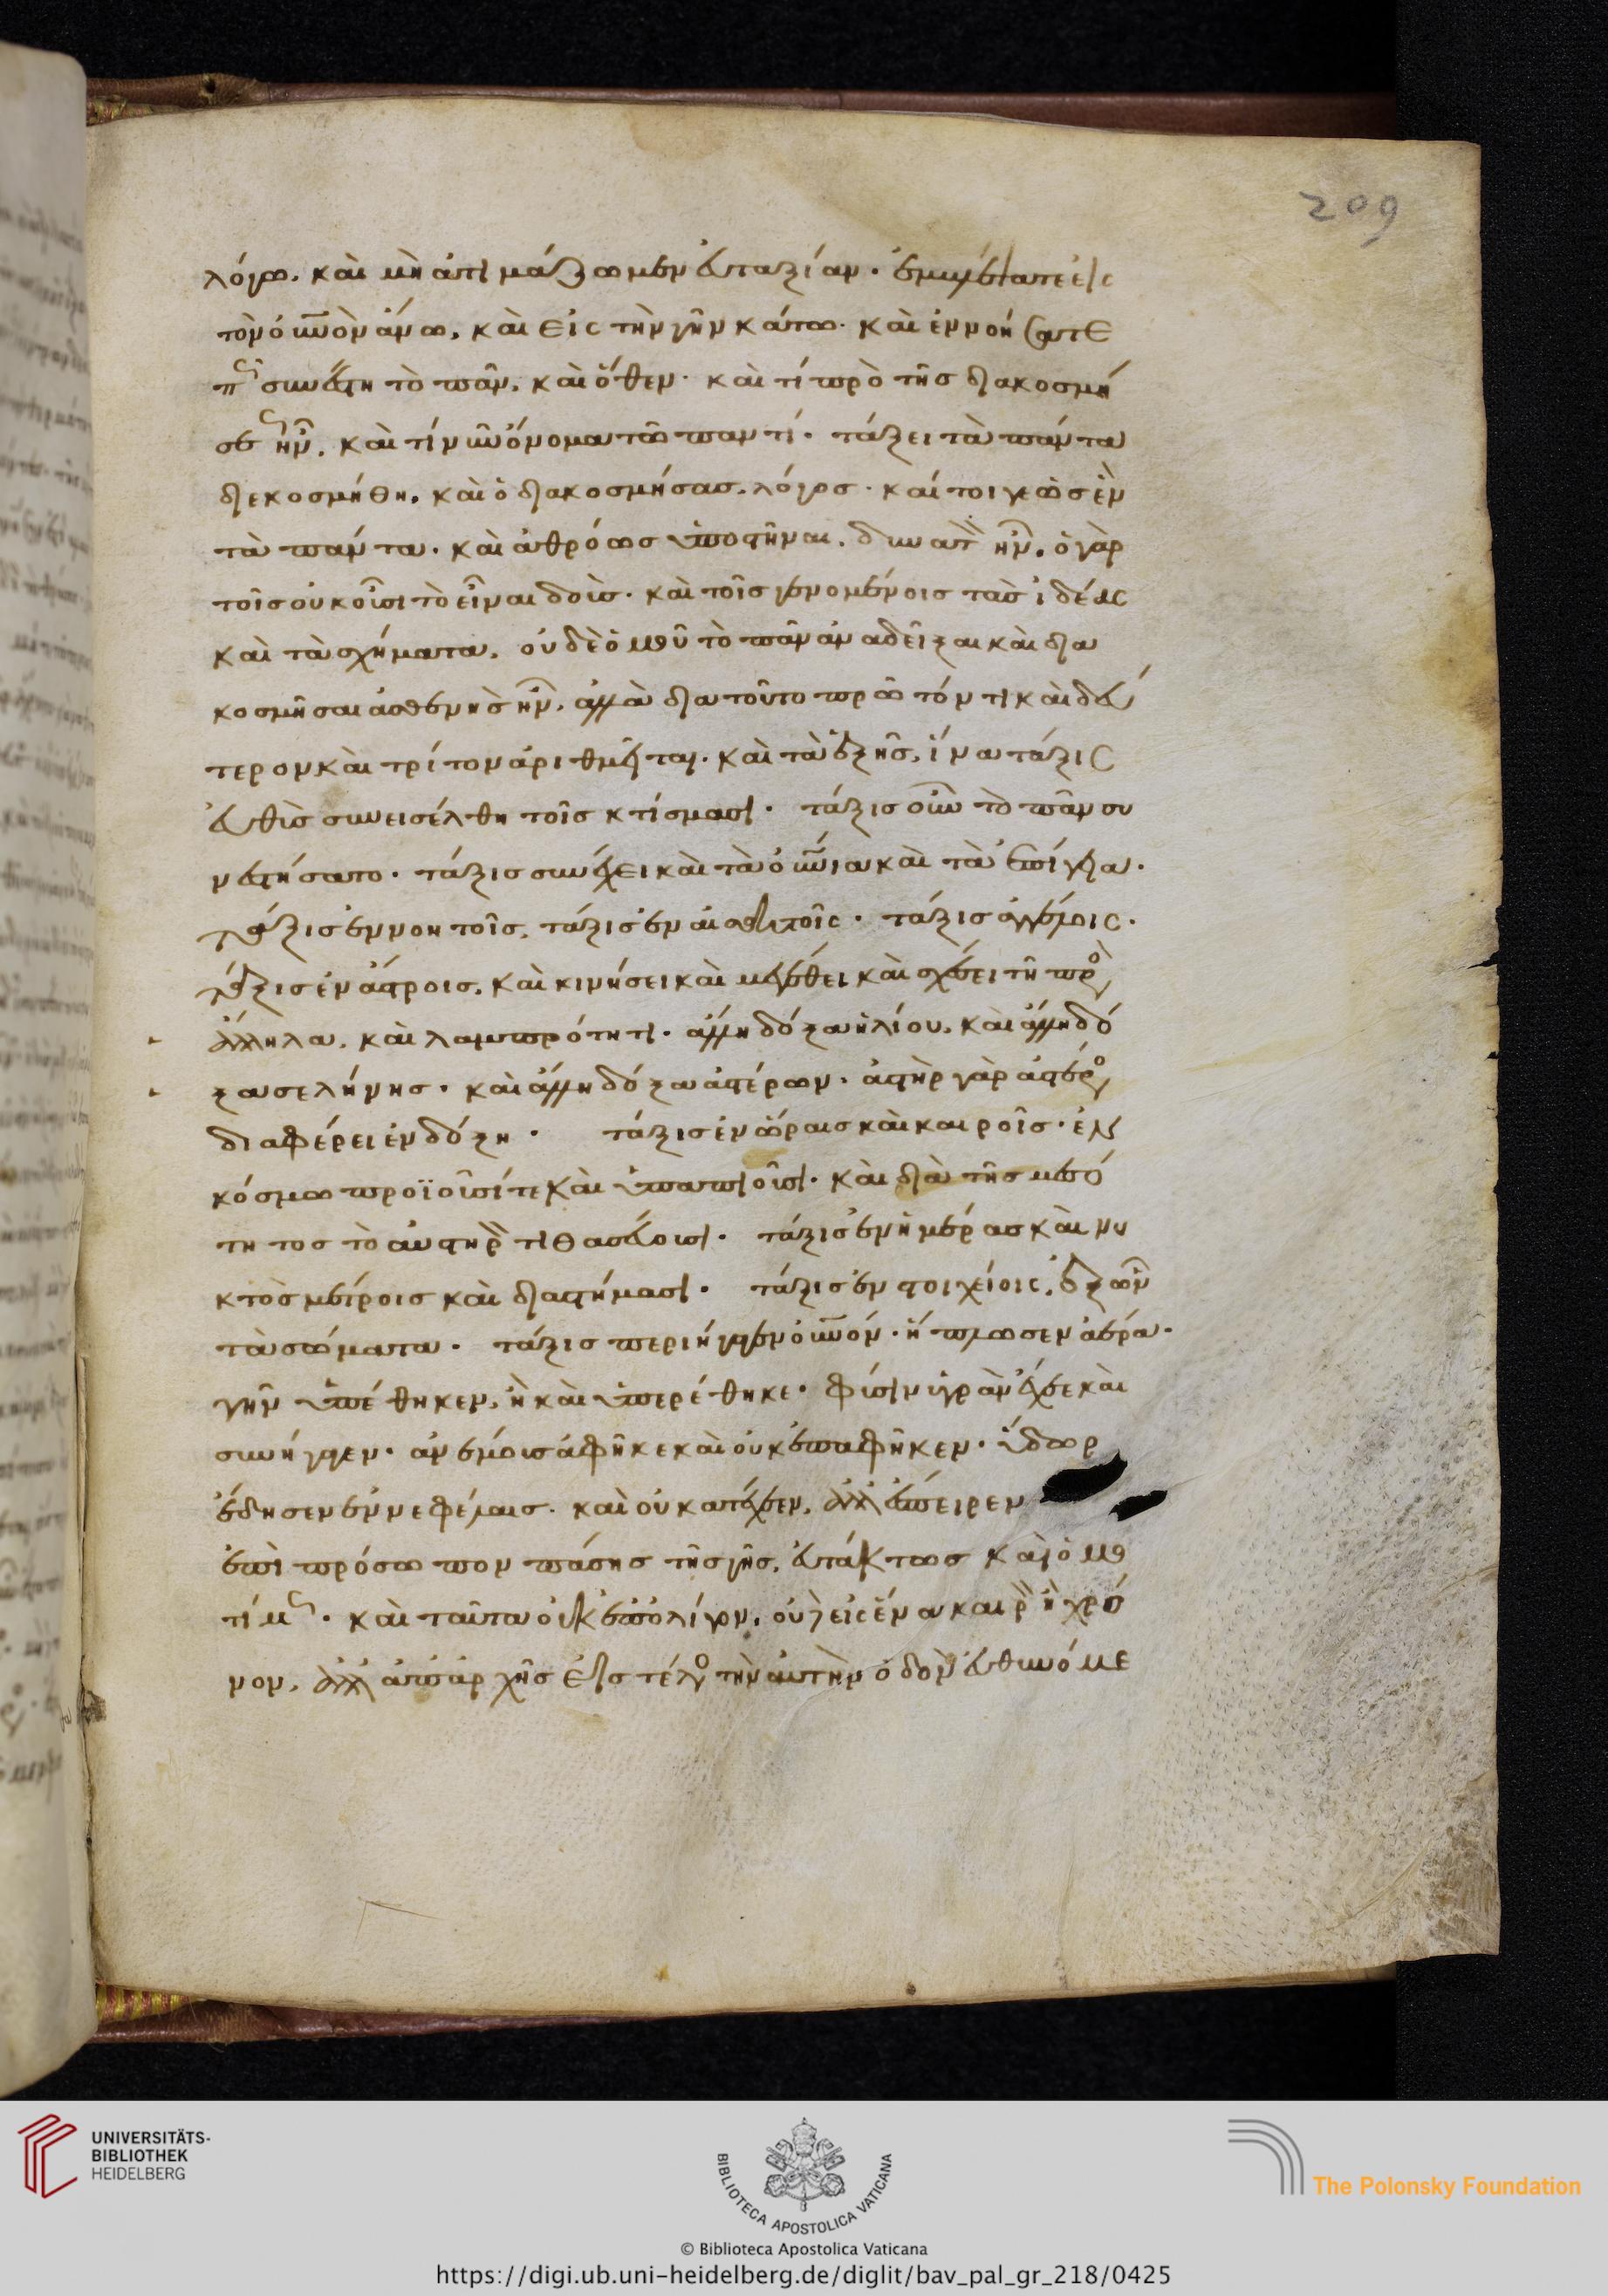 209
λόγω. καὶ μὴ ἀτιμάζωμεν εὐταξίαν. ἐμβλέψατε εἰς
τὸν οὐνὸν ἄνω, καὶ εἰς τὴν γῆν κάτω. καὶ ἐννοήσατε
πῶς συνέστη τὸ πᾶν, καὶ ὅθεν. καὶ τί πρὸ τῆς διακοσμή
σεως ἦν, καὶ τί νῦν ὄνομα τῶ παντί. τάξει τὰ πάντα
διεκοσμήθη, καὶ ὁ διακοσμήσας, λόγος. καίτοιγε ὡς ἓν
τὰ πάντα. καὶ ἀθρόως ὑποστῆναι, δυνατὸν ἦν. ὁ γὰρ
τοῖς οὐκ οὖσι τὸ εἶναι δοὺς. καὶ τοῖς γενομένοις τὰς ἰδέας
καὶ τὰ σχήματα, οὐδὲ ὁμοῦ τὸ πᾶν ἀναδεῖξαι καὶ δια
κοσμῆσαι ἀσθενὴς ἦν. ἀλλὰ διατοῦτο πρῶτόν τι καὶ δεύ
τερον καὶ τρίτον ἀριθμεῖται. καὶ τὰ ἑξῆς, ἵνα τάξις
εὐθὺς συνεισέλθη τοῖς κτίσμασι. τάξις οὖν τὸ πᾶν συ
νεστήσατο. τάξις συνέχει καὶ τὰ οὐνια καὶ τὰ ἐπίγεια.
τάξις ἐν νοητοῖς, τάξις ἐν αἰσθητοῖς. τάξις ἀγγέλοις.
τάξις ἐν ἄστροις, καὶ κινήσει καὶ μεγέθει καὶ σχέσει τῆ πρὸς
ἄλληλα, καὶ λαμπρότητι. ἄλλη δόξα ἡλίου, καὶ ἄλλη δό
ξα σελήνης. καὶ ἄλλη δόξα ἀστέρων. ἀστὴρ γὰρ ἀστέρος
διαφέρει ἐν δόξη. τάξις ἐν ὥραις καὶ καιροῖς. εὐ
κόσμω προϊοῦσί τε καὶ ὑπαπιοῦσι. καὶ διὰ τῆς μεσό
τητος τὸ αὐστηρὸν τιθασεύουσι. τάξις ἐν ἡμέρας καὶ νυ
κτὸς μέτροις καὶ διαστήμασι. τάξις ἐν στοιχείοις, ἐξ ὧν
τὰ σώματα. τάξις περιήγαγεν οὐνόν. ἥπλωσεν ἀέρα.
γῆν ὑπέθηκεν, ἢ καὶ ὑπερέθηκε. φύσιν ὑγρὰν ἔχεε καὶ
συνήγαγεν. ἀνέμους ἀφῆκε καὶ οὐκ ἐπαφῆκεν. ὕδωρ
ἔδησεν ἐν νεφέλαις. καὶ οὐ κατέχεεν, ἀλλ' ἔσπειρεν
ἐπὶ πρόσωπον πάσης τῆς γῆς, εὐτάκτως καὶ ὁμο
τίμως. καὶ ταῦτα οὐκ ἐπ' ὀλίγον, οὐδ' εἰς ἕνα καιρὸν ἢ χρό
νον, ἀλλ' ἀπ' ἀρχῆς εἰς τέλος τὴν αὐτὴν ὁδὸν εὐθυνόμε
UNIVERSITÄTS-
BIBLIOTHEK
HEIDELBERG
BIBLIOTECA APOSTOLICA VATICANA
The Polonsky Foundation
© Biblioteca Apostolica Vaticana
https://digi.ub.uni-heidelberg.de/diglit/bav_pal_gr_218/0425